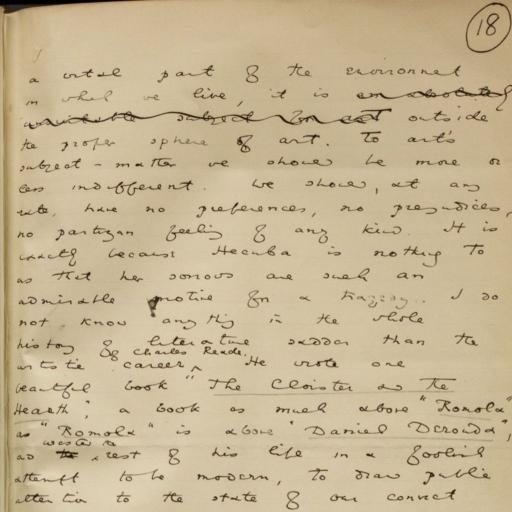 18
a vital part of the environment
in which we live, it is an absolutely
unsuitable subject for art outside
the proper sphere of art. To art's
subject-matter we should be more or
less indifferent. We should, at any
rate, have no preferences, no prejudices,
no partizan feeling of any kind. It is
exactly because Hecuba is nothing to
us that her sorrows are such an
admirable motive for a tragedy. I do
not know anything in the whole
history of literature sadder than the
artistic career Charles Reade. He wrote one
beautiful book "The Cloister and the
Hearth", a book as much above "Romola"
as "Romola" is above "Daniel Deronda",
and wasted the rest of his life in a foolish
attempt to be modern, to draw public
attention to the state of our convict